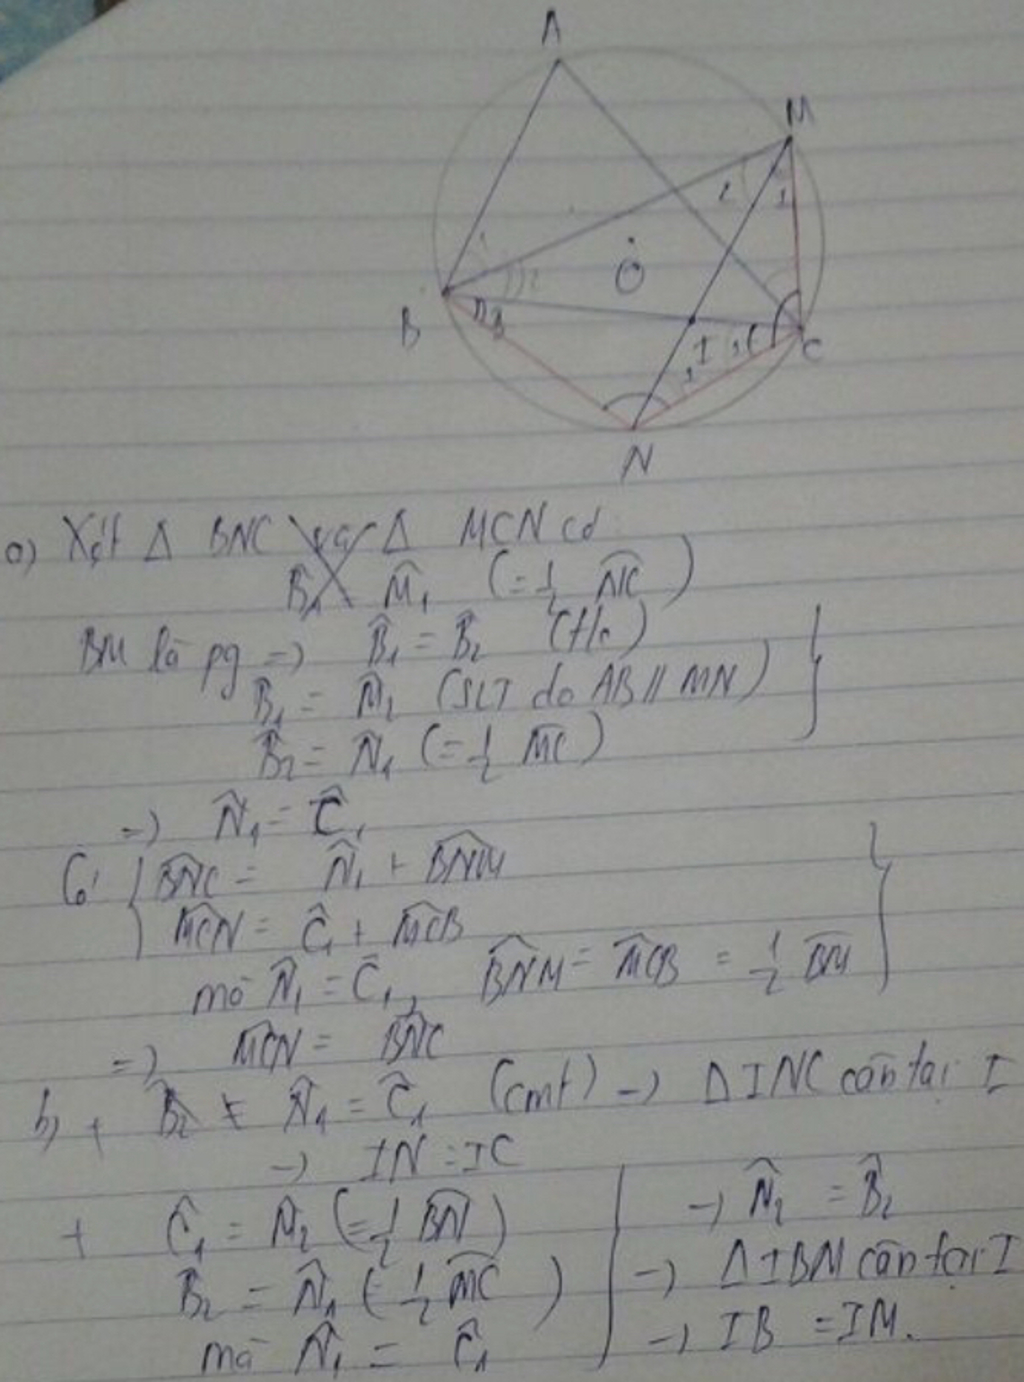 A
M
2 1
1
2
O
B
I 1
C
1
N
a) Xét Δ BNC và Δ MCN có
B̂₁ M̂₁ (= ½ NC)
BM là pg => B̂₁ = B̂₂ (t/c)
B̂₁ = M̂₂ (SLT do AB // MN)
B̂₂ = N̂₁ (= ½ MC)
=> N̂₁ = Ĉ₁
Có { BNC = N̂₁ + BNM
MCN = Ĉ₁ + MCB
mà N̂₁ = Ĉ₁, BNM = MCB = ½ BM
=> MCN = BNC
b) + B̂₂ = N̂₁ = Ĉ₁ (cmt) -> Δ INC cân tại I
-> IN = IC
+ Ĉ₁ = M̂₂ (= ½ BN) -> M̂₂ = B̂₂
B̂₂ = N̂₁ (½ MC) -> Δ IBM cân tại I
mà N̂₁ = Ĉ₁ -> IB = IM.